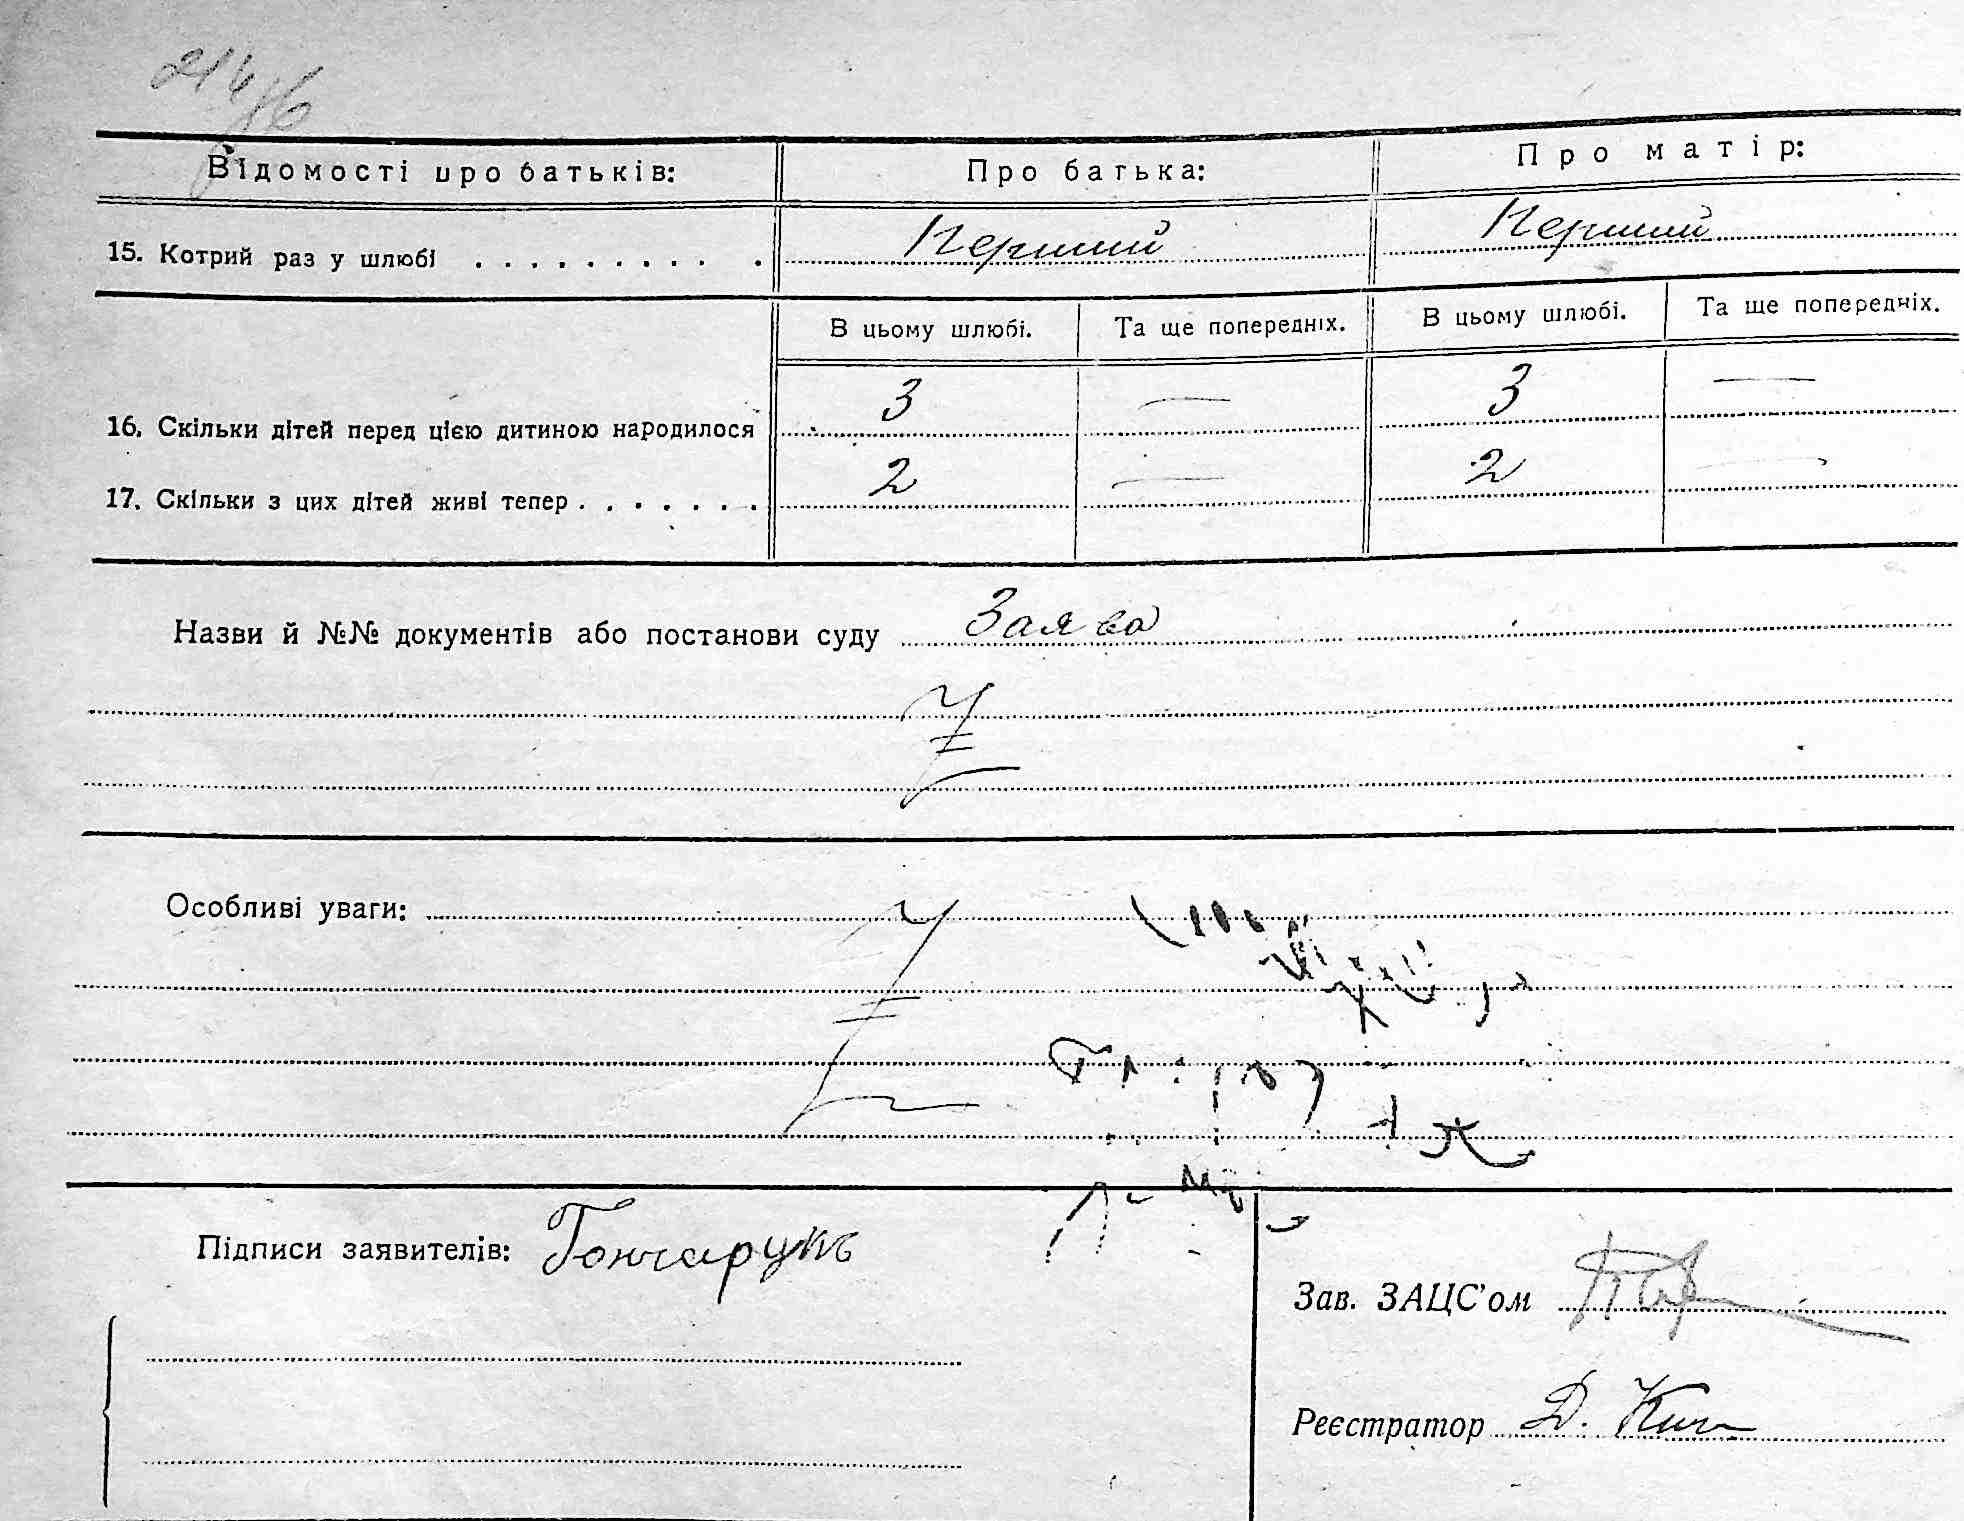 214/6
Відомості про батьків: Про батька: Про матір:
15. Котрий раз у шлюбі . . . . . . . . . . Перший Перший
В цьому шлюбі. Та ще попередніх. В цьому шлюбі. Та ще попередніх.
16. Скільки дітей перед цією дитиною народилося 3 — 3 —
17. Скільки з цих дітей живі тепер . . . . . . . 2 — 2 —
Назви й №№ документів або постанови суду Заява
Особливі уваги:
Підписи заявителів: Гончарукъ
Зав. ЗАЦС'ом
Реєстратор Д.